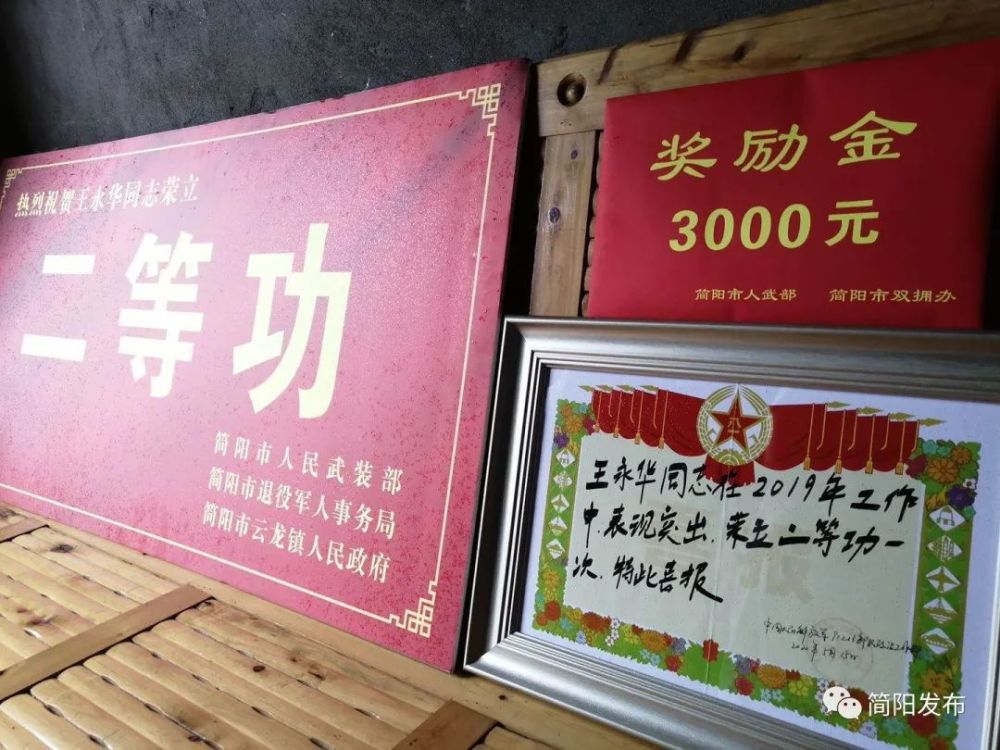 热烈祝贺王永华同志荣立
二等功
简阳市人民武装部
简阳市退役军人事务局
简阳市云龙镇人民政府
奖励金
3000元
简阳市人武部 简阳市双拥办
王永华同志在2019年工作
中,表现突出,荣立二等功一
次,特此喜报
简阳发布